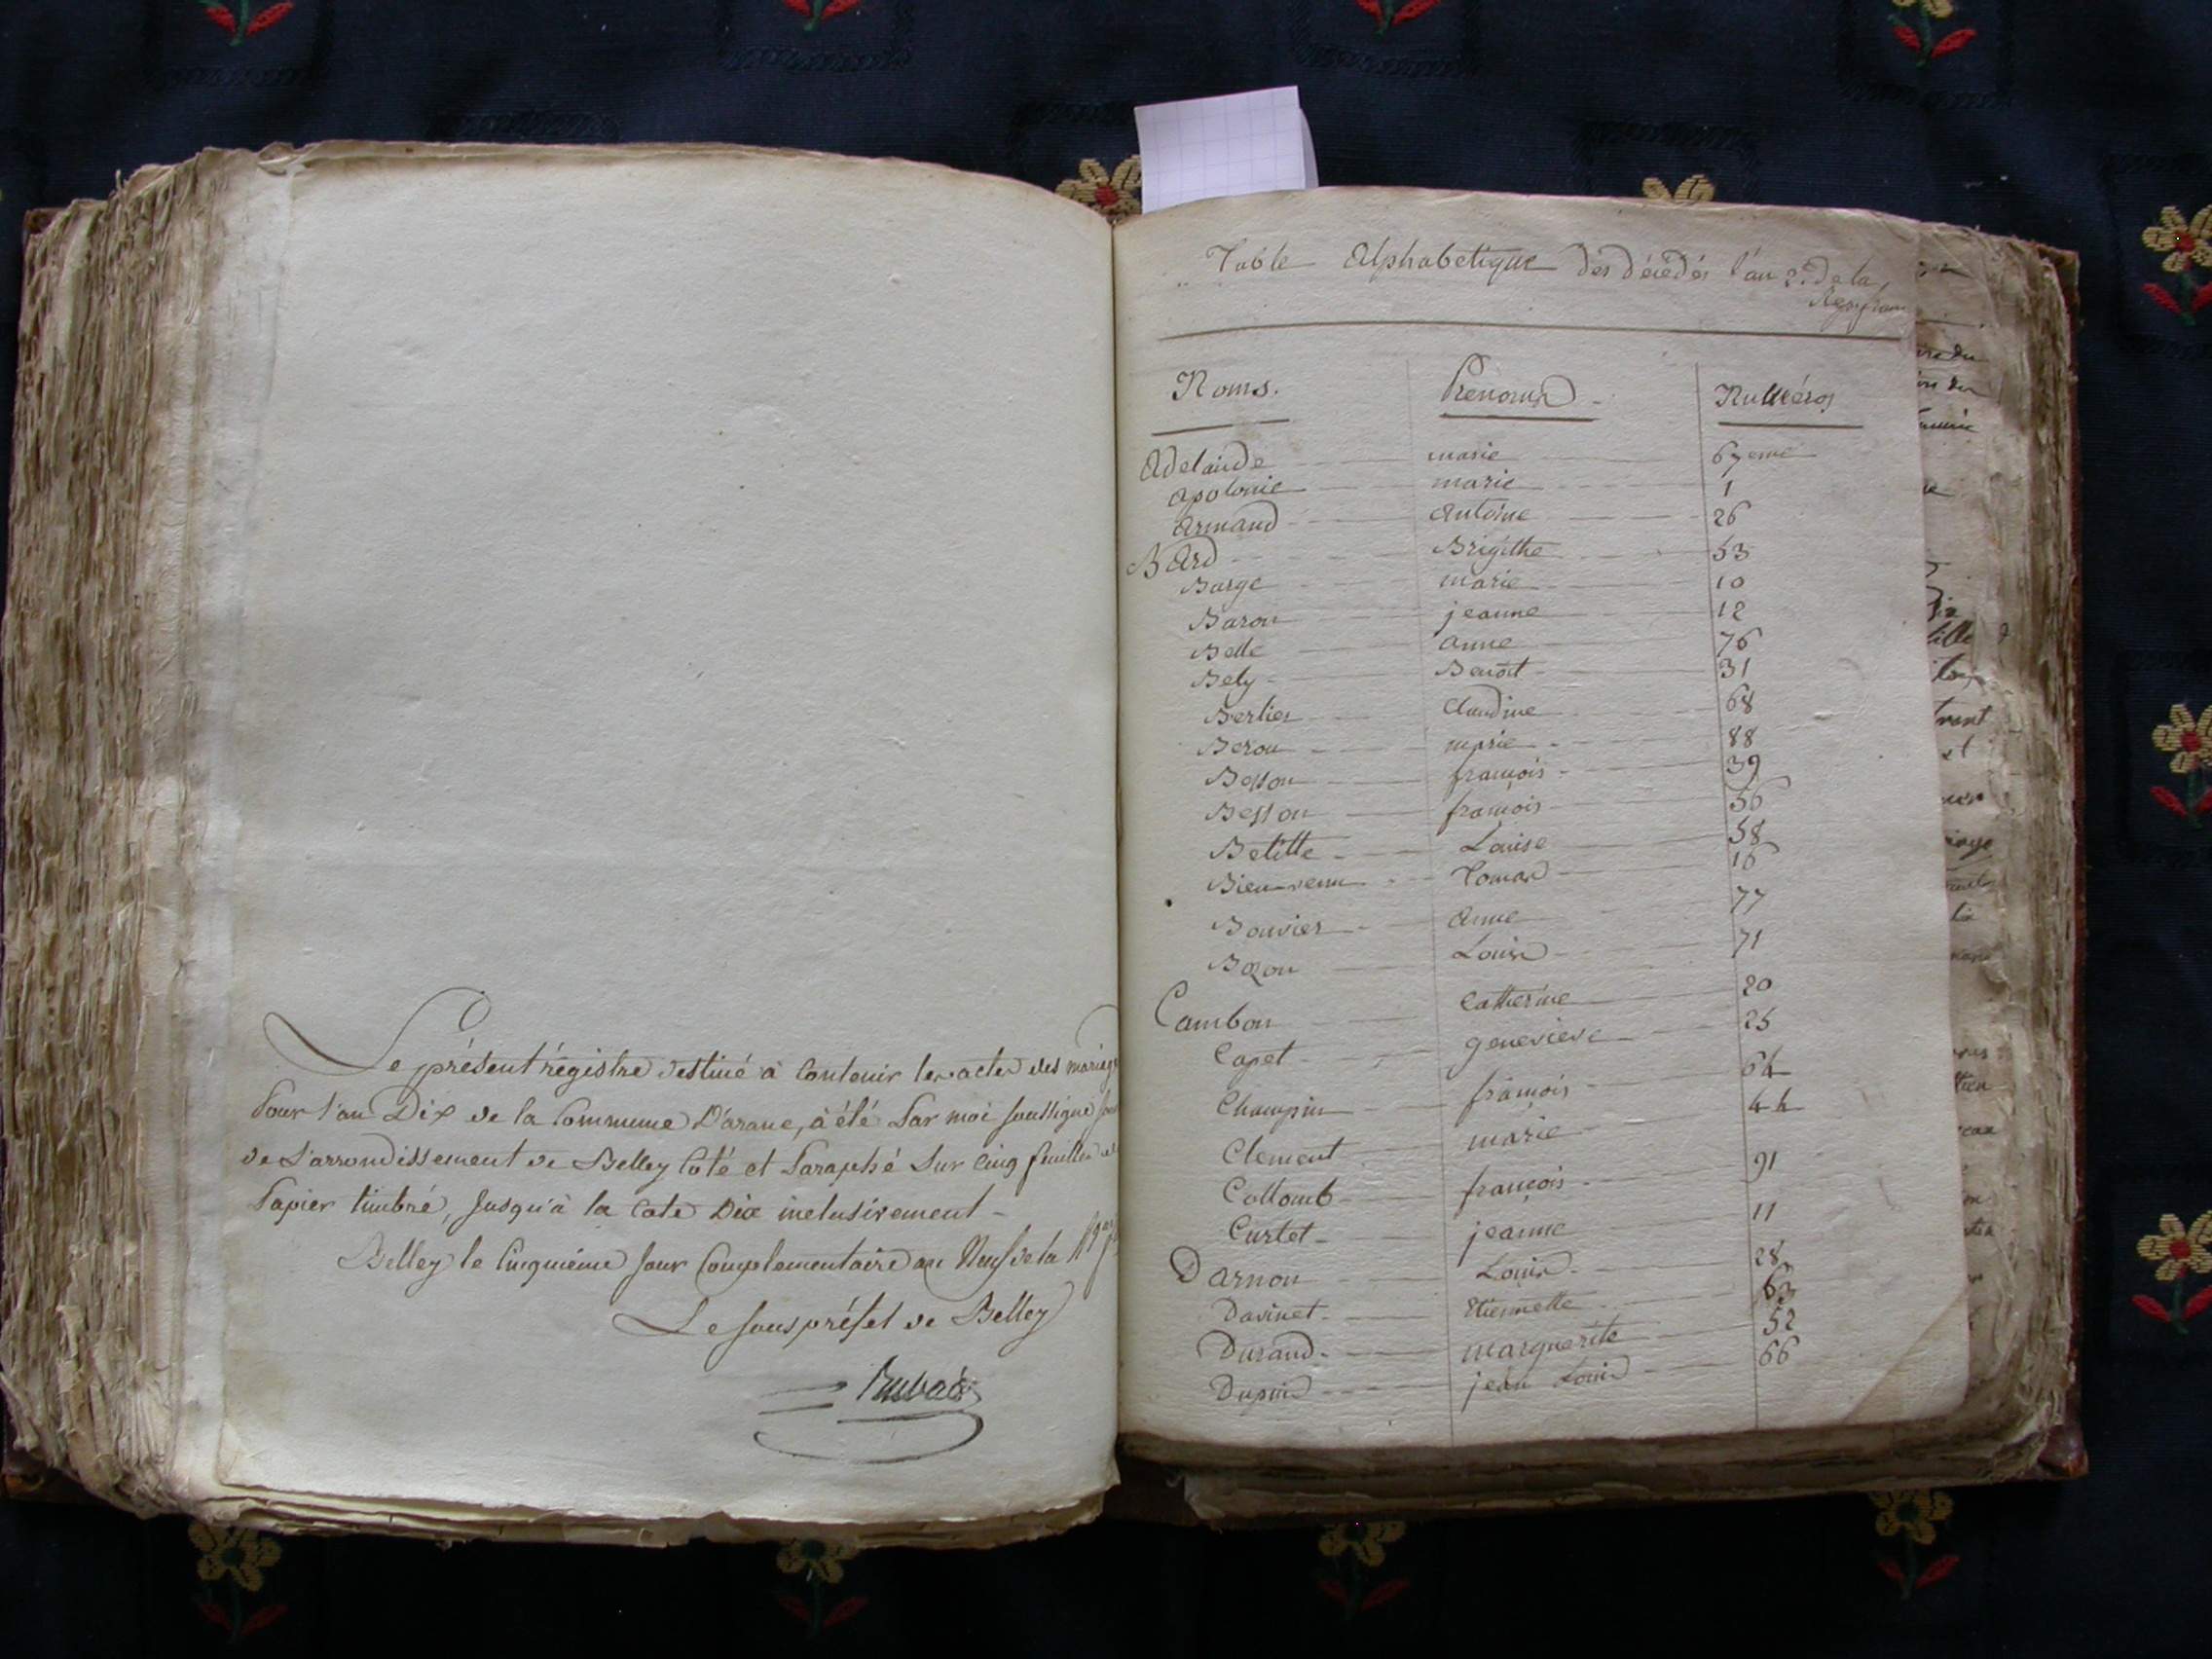 Le présent régistre destiné à Contenir les actes des mariag
Pour l'an Dix de la Commune D'arane, à été Par moi soussigné sous
de L'arrondissement de Belley Coté et Paraphé Sur Cinq feuilles de
Papier timbré, Jusqu'à la Cote Dix inclusivement -
Belley le Cinquième Jour Complementaire an Neuf de la
Le sous préfet de Belley
Table Alphabetique des décédés l'an 3e de la
Noms. Prenoms - Numéros
Adelaide marie 67eme
apolonie marie 1
Armand Antoine 26
BArd Brigitthe 53
Barge marie 10
Baron jeanne 12
Belle anne 76
Bely Benoît 31
Berlier Claudine 68
Beron marie 88
Besson françois 39
Besson françois 56
Betitte Louise 58
Bien-venu Tomas 16
Bouvier Anne 77
Bozon Louis 71
Cambon Catherine 20
Capet genevieve 25
Champin françois 64
Clement marie 44
Collomb françois 91
Curtet jeanne 11
Darnon Louis 28
Davinet Etiennette 63
Durand marguerite 52
Dupuis jean Louis 66